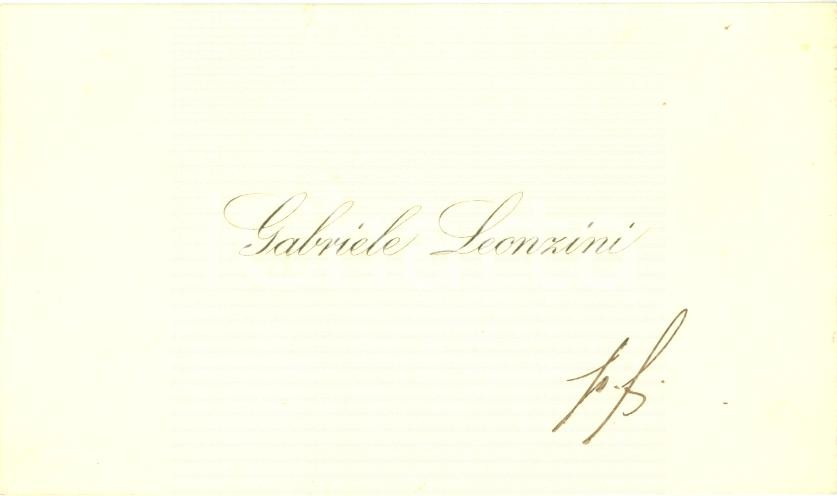 Gabriele Leonzini
p.f.